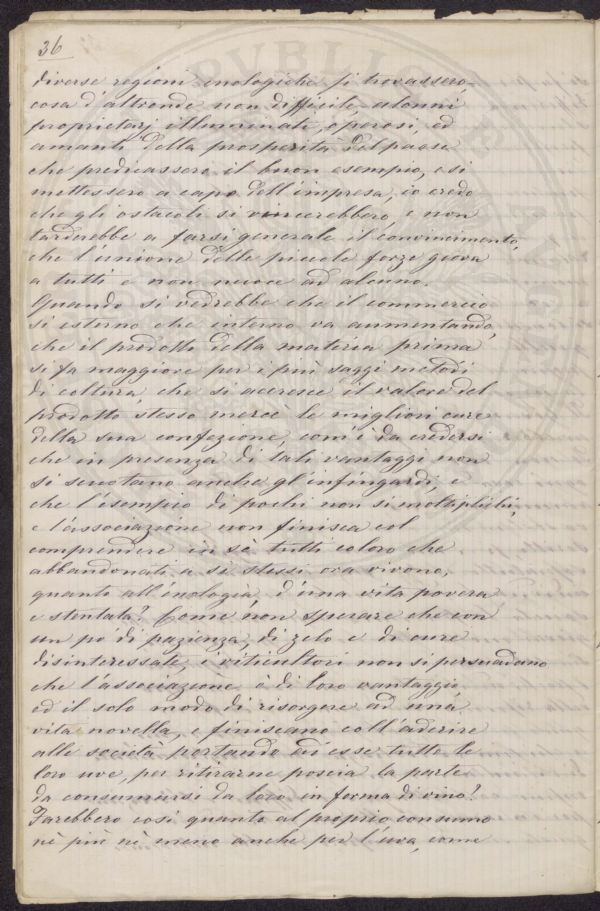 36
diverse regioni enologiche si trovassero,
cosa d'altronde non difficile, alcuni
proprietarj illuminati, operosi, ed
amanti della prosperità del paese
che predicassero il buon esempio, e si
mettessero a capo dell'impresa, io credo
che gli ostacoli si vincerebbero, e non
tarderebbe a farsi generale il convincimento,
che l'unione delle piccole forze giova
a tutti e non nuoce ad alcuno.
Quando si vedrebbe che il commercio
si esterno che interno va aumentando,
che il prodotto della materia prima
si fa maggiore per i più saggi metodi
di coltura, che si accresce il valore del
prodotto stesso mercè le migliori cure
della sua confezione, com'è da credersi
che in presenza di tali vantaggi non
si scuotano anche gl'infingardi, e
che l'esempio di pochi non si moltiplichi,
e l'associazione non finisca col
comprendere in sè tutti coloro che
abbandonati a sè stessi ora vivono,
quanto all'enologia, d'una vita povera
e stentata? Come non sperare che con
un po' di pazienza, di zelo e di cure
disinteressate i viticultori non si persuadano
che l'associazione è di loro vantaggio,
ed il solo modo di risorgere ad una
vita novella, e finiscano coll'aderire
alle società portando ad esse tutte le
loro uve, per ritirarne poscia la parte
da consumarsi da loro in forma di vino?
Farebbero così quanto al proprio consumo
nè più nè meno anche per l'uva, come